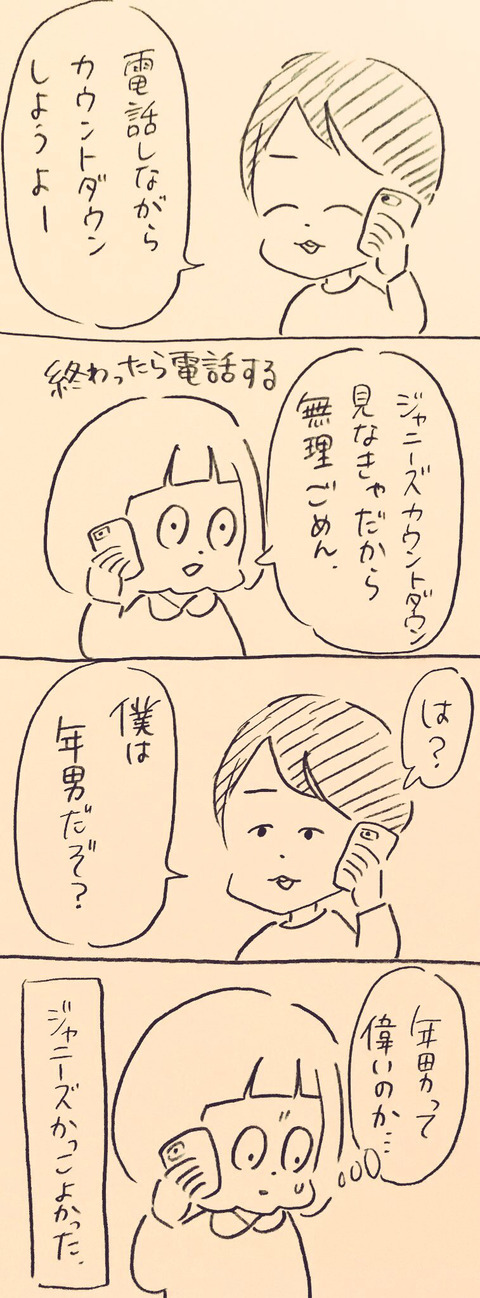 電話しながら
カウントダウン
しようよー
終わったら電話する
ジャニーズカウントダウン
見なきゃだから
無理ごめん.
は?
僕は
年男だぞ?
年男って
偉いのか…
ジャニーズかっこよかった.